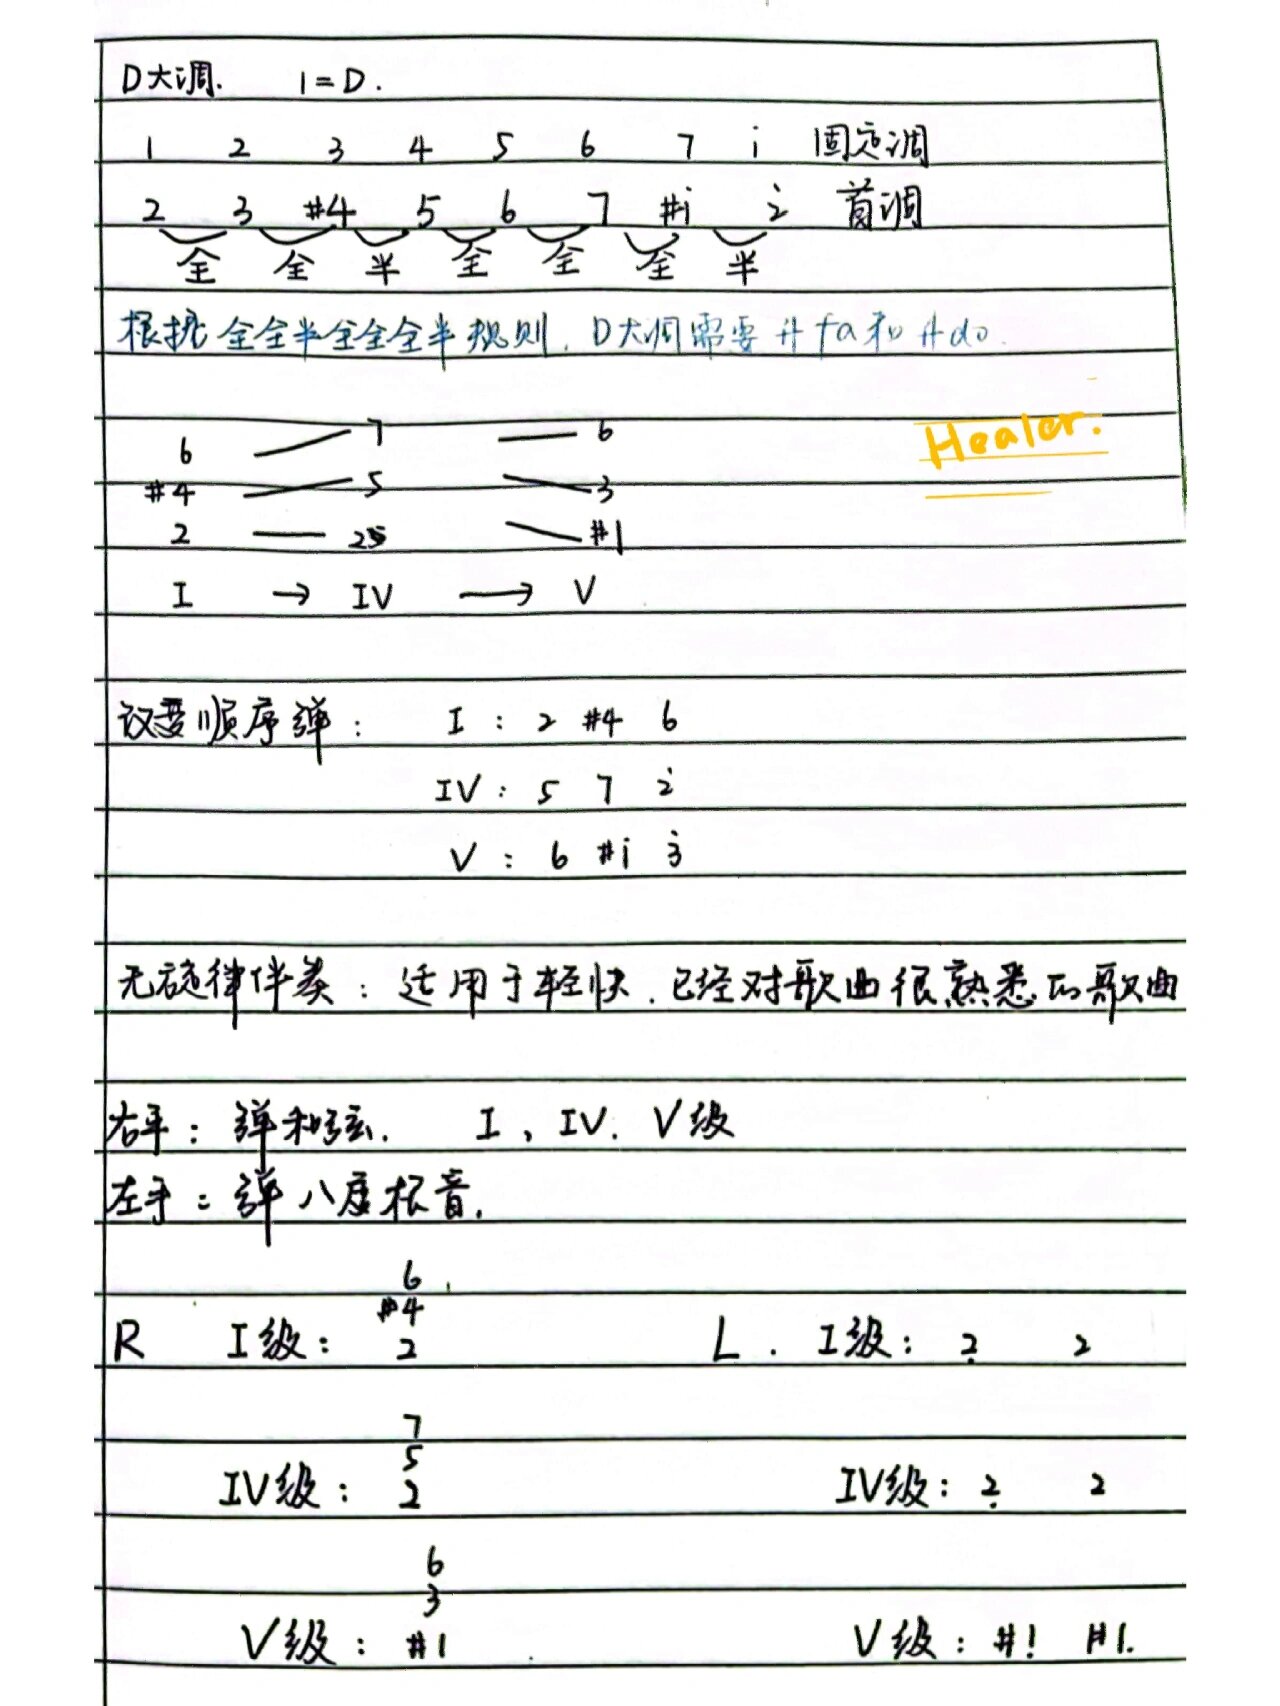 D大调. 1=D.
1 2 3 4 5 6 7 i 固定调
2 3 #4 5 6 7 #i 2̇ 首调
全 全 半 全 全 全 半
根据 全全半全全全半 规则, D大调需要 #fa和 #do.
Healer.
6 7 6
#4 5 3
2 2 #1
I → IV → V
改变顺序弹: I : 2 #4 6
IV : 5 7 2̇
V : 6 #i 3̇
无旋律伴奏: 适用于轻快. 已经对歌曲很熟悉的歌曲
右手: 弹和弦. I、IV. V级
左手: 弹八度根音.
6
#4
R I级: 2 L. I级: 2̣ 2
7
5
IV级: 2 IV级: 2̣ 2
6
3
V级: #1 V级: #1̣ #1.